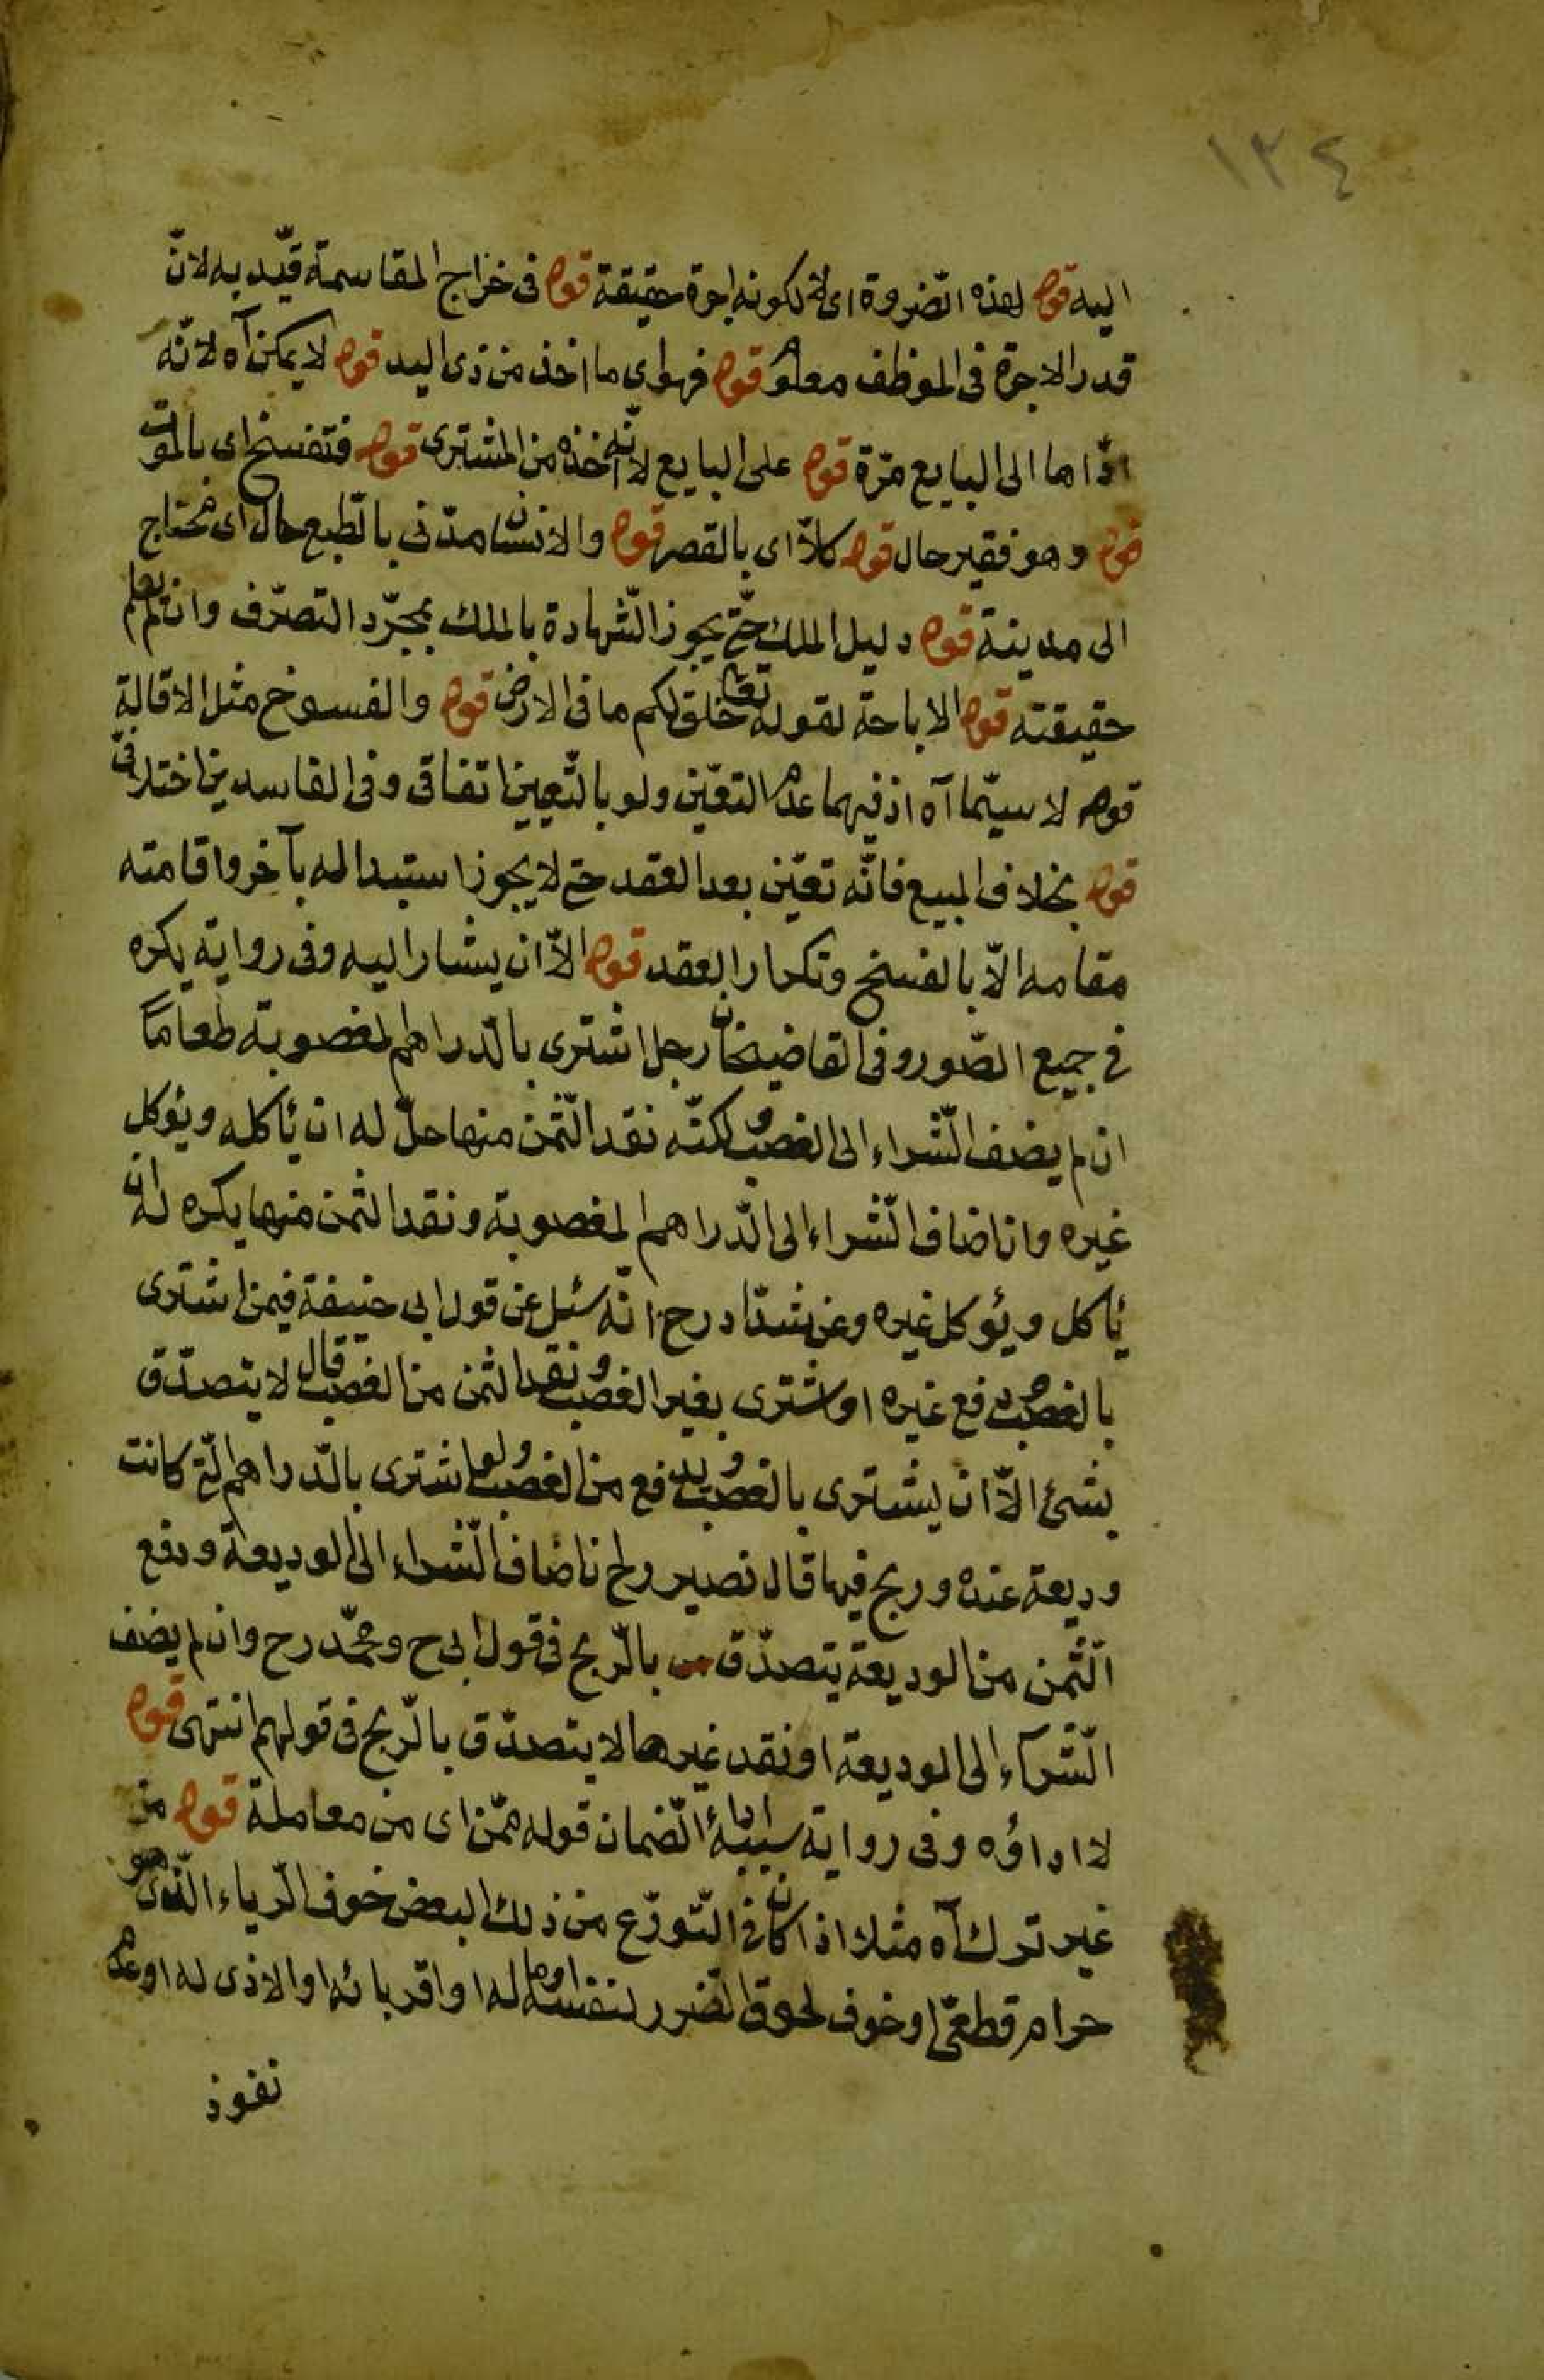 ١٣٤
اليه قوله لهذه الضرورة اى لا لكونه اجرة حقيقة قوله فى خراج المقاسمة قيّد به لانّ
قدر الاجرة فى الموظف معلوم قوله فهو اى ما اخذ من ذى اليد قوله لا يمكن آه لانّه
ادّاها الى البايع مرّة قوله على البايع لانّه اخذه من المشترى قوله فتفسخ اى بالموت
قوله وهو فقير حال قوله كلأ اى بالقصر قوله والانسان مدنى بالطبع حال اى محتاج
الى مدينة قوله دليل الملك حتّى يجوز الشّهادة بالملك بمجرّد التصرّف وان لم يعلم
حقيقته قوله الاباحة لقوله تعا خلق لكم ما فى الارض قوله والفسوخ مثل الاقالة
قوله لا سيّما آه اذ فيهما عدم التعيّن ولو بالتّعيين اتفاقى وفى الفاسدين اختلافىّ
قوله بخلاف المبيع فانّه تعيّن بعد العقد حتى لا يجوز استبداله بآخر واقامته
مقامه الّا بالفسخ وتكرار العقد قوله الّا ان يشار اليه وفى رواية يكره
فى جميع الصّور وفى القاضيخان رجل اشترى بالدّراهم المغصوبة طعامًا
ان لم يضف الشّراء الى الغصوب لكنّه نقد الثّمن منها حلّ له ان يأكله ويؤكل
غيره وان اضاف الشّراء الى الدّراهم المغصوبة ونقد الثمن منها يكره له ان
يأكل ويؤكل غيره وعن شدّاد رح انّه سئل عن قول ابى حنيفة فيمن اشترى
بالغصب ودفع غيره او اشترى بغير الغصب ونقد الثمن من الغصب قال لا يتصدّق
بشئ الّا ان يشترى بالغصب ويدفع من الغصب ولو اشترى بالدّراهم الّتى كانت
وديعة عنده وربح فيها قال نصير رح ان اضاف الشّراء الى الوديعة ودفع
الثّمن من الوديعة يتصدّق بالرّبح فى قول ابى ح ومحمّد رح وان لم يضف
الشّراء الى الوديعة او نقد غيرها لا يتصدّق بالرّبح فى قولهم انتهى قوله
لا اداؤه وفى رواية سببه اداء الضمان قوله ممّن اى من معاملة قوله من
غير ترك آه مثلا اذا كان فى التّورّع من ذلك البعض خوف الرّياء الّذى هو
حرام قطعىّ او خوف لحوق الضّرر لنفسه او ماله او اقربائه او الاذى له او عدم
نفوذ